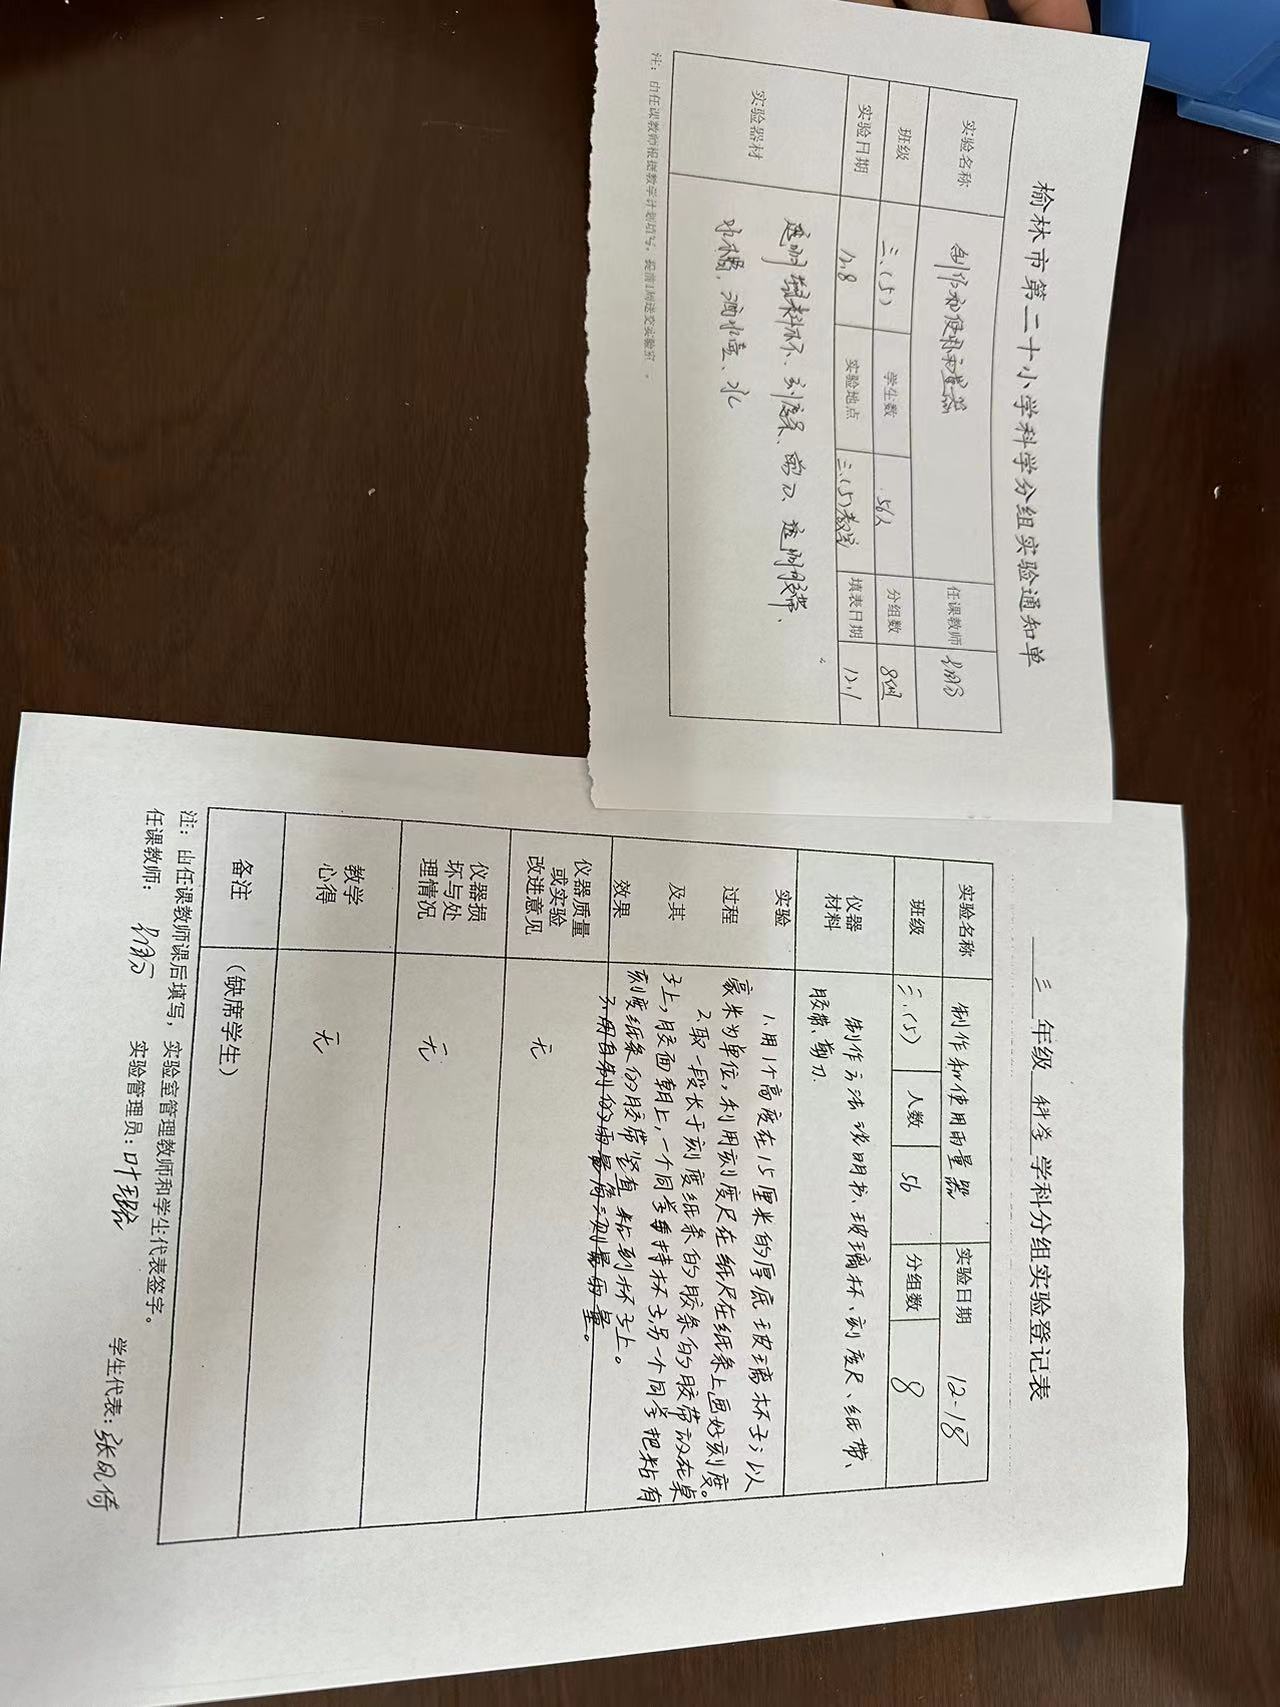 榆林市第二十小学科学分组实验通知单
实验名称 制作和使用雨量器 任课教师
班级 三.(5) 学生数 56人 分组数 8组
实验日期 12.8 实验地点 三.(5)教室 填表日期 12.1
实验器材 透明塑料杯、刻度条、剪刀、透明胶带、
水槽、洒水壶、水
注：由任课教师根据教学计划填写，提前1周送交实验室。
三 年级 科学 学科分组实验登记表
实验名称 制作和使用雨量器 实验日期 12-18
班级 三.(5) 人数 56 分组数 8
仪器材料 制作方法说明书、玻璃杯、刻度尺、纸带、
胶带、剪刀
实验过程及其效果 1.用1个高度在15厘米的厚底玻璃杯子；以
毫米为单位，利用刻度尺在纸尺在纸条上画好刻度。
2.取一段长于刻度纸条的胶条的胶带放在桌
子上，胶面朝上，一个同学手持杯子，另一个同学把粘有
刻度纸条的胶带竖直粘到杯子上。
3.用自制的雨量器测量雨量。
仪器质量或实验改进意见 无
仪器损坏与处理情况 无
教学心得 无
备注 （缺席学生）
注：由任课教师课后填写，实验室管理教师和学生代表签字。
任课教师： 实验管理员：叶 学生代表：张凤倚